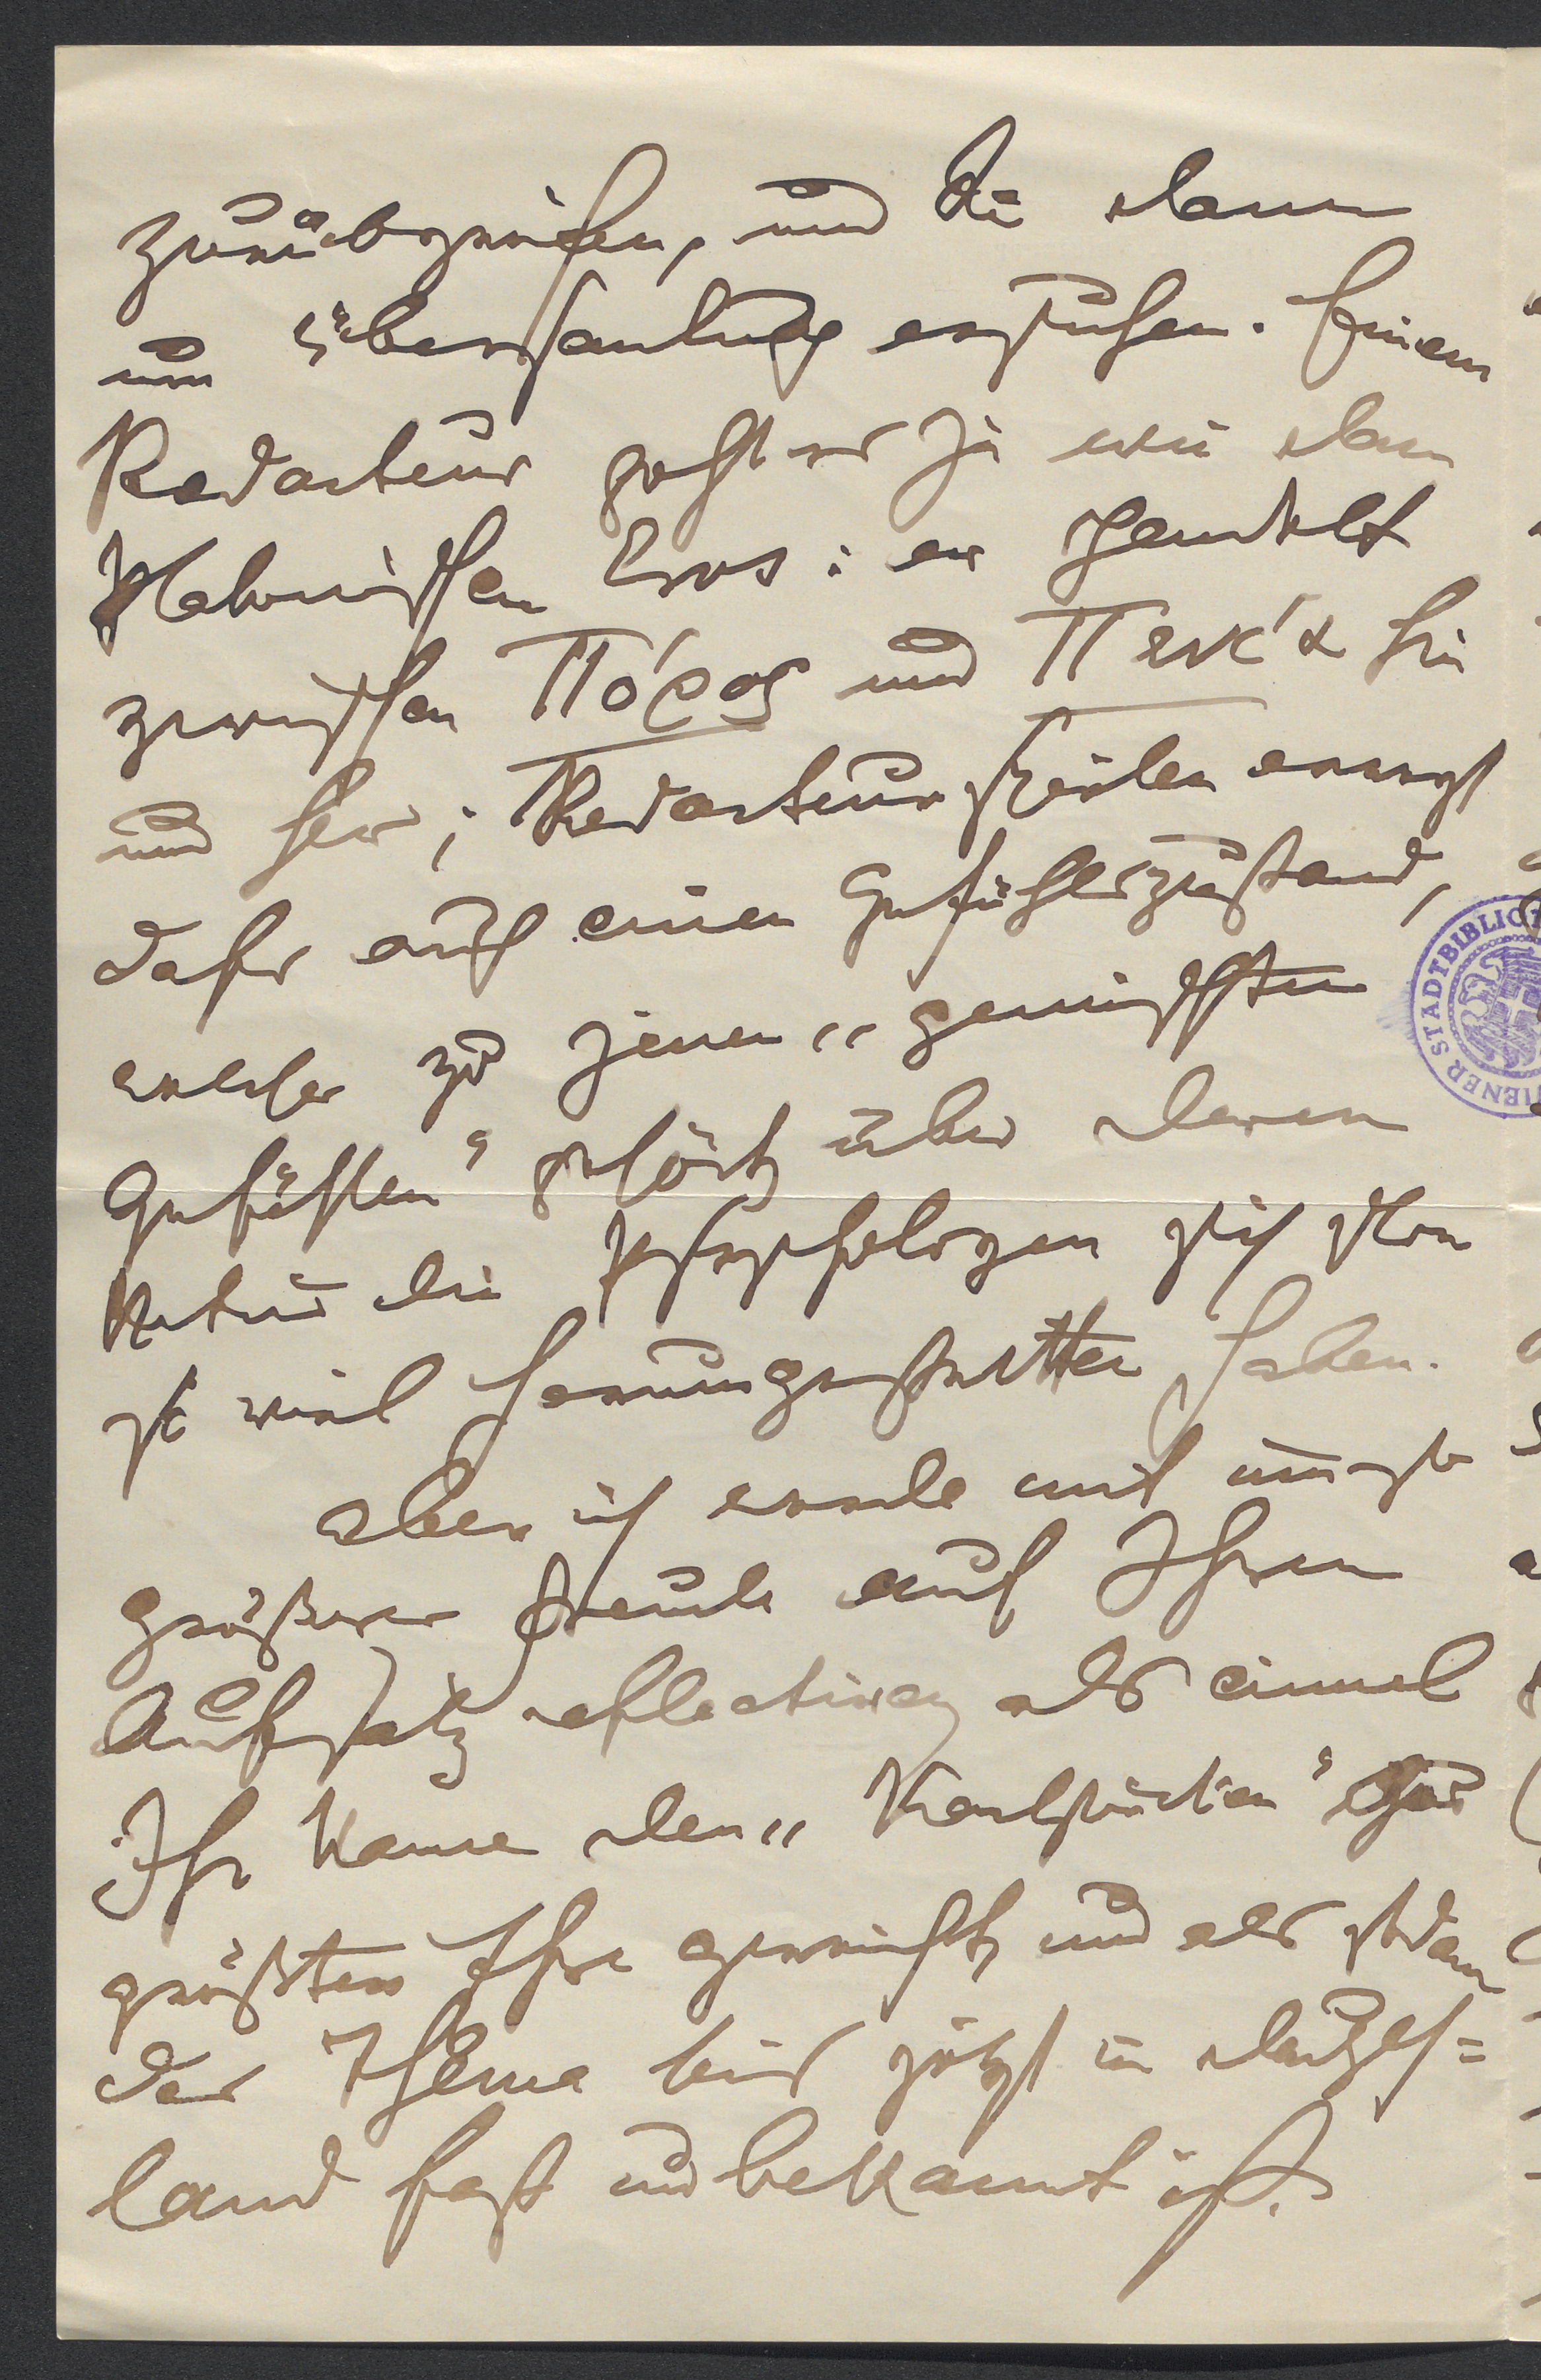 zurückgreifen, und Sie dann
um Übersendung ersuchen. Einem
Redacteur geht es ja wie dem
Platonischen Eros: er pendelt
zwischen Πόρος und Πενία hin
und her; Redacteur sein erregt
daher auch einen Gefühlszustand,
welcher zu jenen „gemischten
Gefühlen" gehört, über deren
Natur die Psychologen sich schon
so viel herumgestritten haben.
Aber ich werde mit umso
größerer Freude auf Ihren
Aufsatz reflectiren, als einmal
Ihr Name den „Kantstudien" zur
größten Ehre gereicht, und als sodann
das Thema bis jetzt in Deutsch=
land fast unbekannt ist.
WIENER STADTBIBLIOT